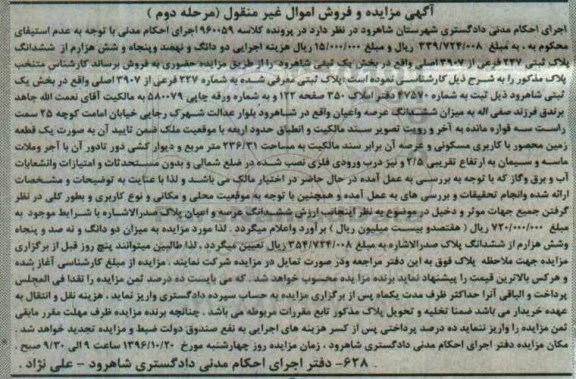 آگهی مزایده و فروش اموال غیر منقول (مرحله دوم )
اجرای احکام مدنی دادگستری شهرستان شاهرود در نظر دارد در پرونده کلاسه ۹۶۰۰۵۹ اجرای احکام مدنی با توجه به عدم استیفای
محکوم به ، به مبلغ ۳۳۹/۷۲۴/۰۰۸ ریال و مبلغ ۱۵/۰۰۰/۰۰۰ ریال هزینه اجرایی دو دانگ و نهصد وپنجاه و شش هزارم از ششدانگ
پلاک ثبتی ۲۲۷ فرعی از ۳۹۰۷ اصلی واقع در بخش یک ثبتی شاهرود را از طریق مزایده حضوری به فروش برساند کارشناس منتخب
پلاک مذکور را به شرح ذیل کارشناسی نموده است :پلاک ثبتی معرفی شده به شماره ۲۲۷ فرعی از ۳۹۰۷ اصلی واقع در بخش یک
ثبتی شاهرود ذیل ثبت به شماره ۴۷۵۷۰ دفتر املاک ۳۵۰ صفحه ۱۳۲ و به شماره ورقه چاپی ۵۸۰۰۷۹ به مالکیت آقای نعمت الله جاهد
برندق فرزند صفی اله به میزان ششدانگ عرصه واعیان واقع در شاهرود بلوار عدالت شهرک رجایی خیابان امامت کوچه ۲۵ سمت
راست سه قواره مانده به آخر و رویت تصویر سند مالکیت و انطباق حدود اربعه با موقعیت ملک ضمن تایید آن به صورت یک قطعه
زمین محصور با کاربری مسکونی و عرصه آن برابر سند مالکیت به مساحت ۲۳۶/۳۱ متر مربع و دیوار کشی دور تادور آن با آجر وملات
ماسه و سیمان به ارتفاع تقریبی ۲/۵ و نیز درب ورودی فلزی نصب شده در ضلع شمالی و بدون مستحدثات و امتیازات وانشعابات
آب و برق وگاز که با توجه به بررسی به عمل آمده در حال حاضر در اختیار مالک می باشد و لذا با عنایت به توضیحات و مشخصات
ارائه شده وانجام تحقیقات و بررسی های به عمل آمده و همچنین با توجه به موقعیت محلی و مکانی و نوع کاربری و بطور کلی در نظر
گرفتن جمیع جهات موثر و دخیل در موضوع به نظر اینجانب ارزش ششدانگ عرصه و اعیان پلاک صدرالاشاره با شرایط موجود به
مبلغ ۷۲۰/۰۰۰/۰۰۰ ریال ( هفتصدو بیست میلیون ریال ) برآورد واعلام میگردد . لذا مورد مزایده به میزان دو دانگ و نه صد و پنجاه
وشش هزارم از ششدانگ پلاک صدرالاشاره به مبلغ ۳۵۴/۷۲۴/۰۰۸ ریال تعیین میگردد ،لذا طالبین میتوانند پنج روز قبل از برگزاری
مزایده جهت ملاحظه پلاک فوق به این دفتر مراجعه ودر صورت تمایل در مزایده شرکت نمایند . مزایده از مبلغ کارشناسی آغاز شده
و هرکس بالاترین قیمت را پیشنهاد نماید برنده مزایده محسوب خواهد شد. که می بایست ده درصد ثمن مزایده را نقدا فی المجلس
پرداخت و الباقی آنرا حداکثر ظرف مدت یکماه پس از برگزاری مزایده به حساب سپرده دادگستری واریز نماید . هزینه نقل و انتقال به
عهده خریدار می باشد ضمنا تخلیه و تحویل پلاک مذکور تابع مقررات مربوطه می باشد . چنانچه برنده مزایده ظرف مهلت مقرر مابقی
ثمن مزایده را واریز ننماید ده درصد پرداختی پس از کسر هزینه های اجرایی به نفع صندوق دولت ضبط و مزایده تجدید خواهد شد .
مکان مزایده دفتر اجرای احکام مدنی دادگستری شاهرود ، زمان مزایده روز چهارشنبه مورخ ۱۳۹۶/۱۰/۲۰ ساعت ۹ الی ۹/۳۰ صبح .
۶۲۸- دفتر اجرای احکام مدنی دادگستری شاهرود - علی نژاد .